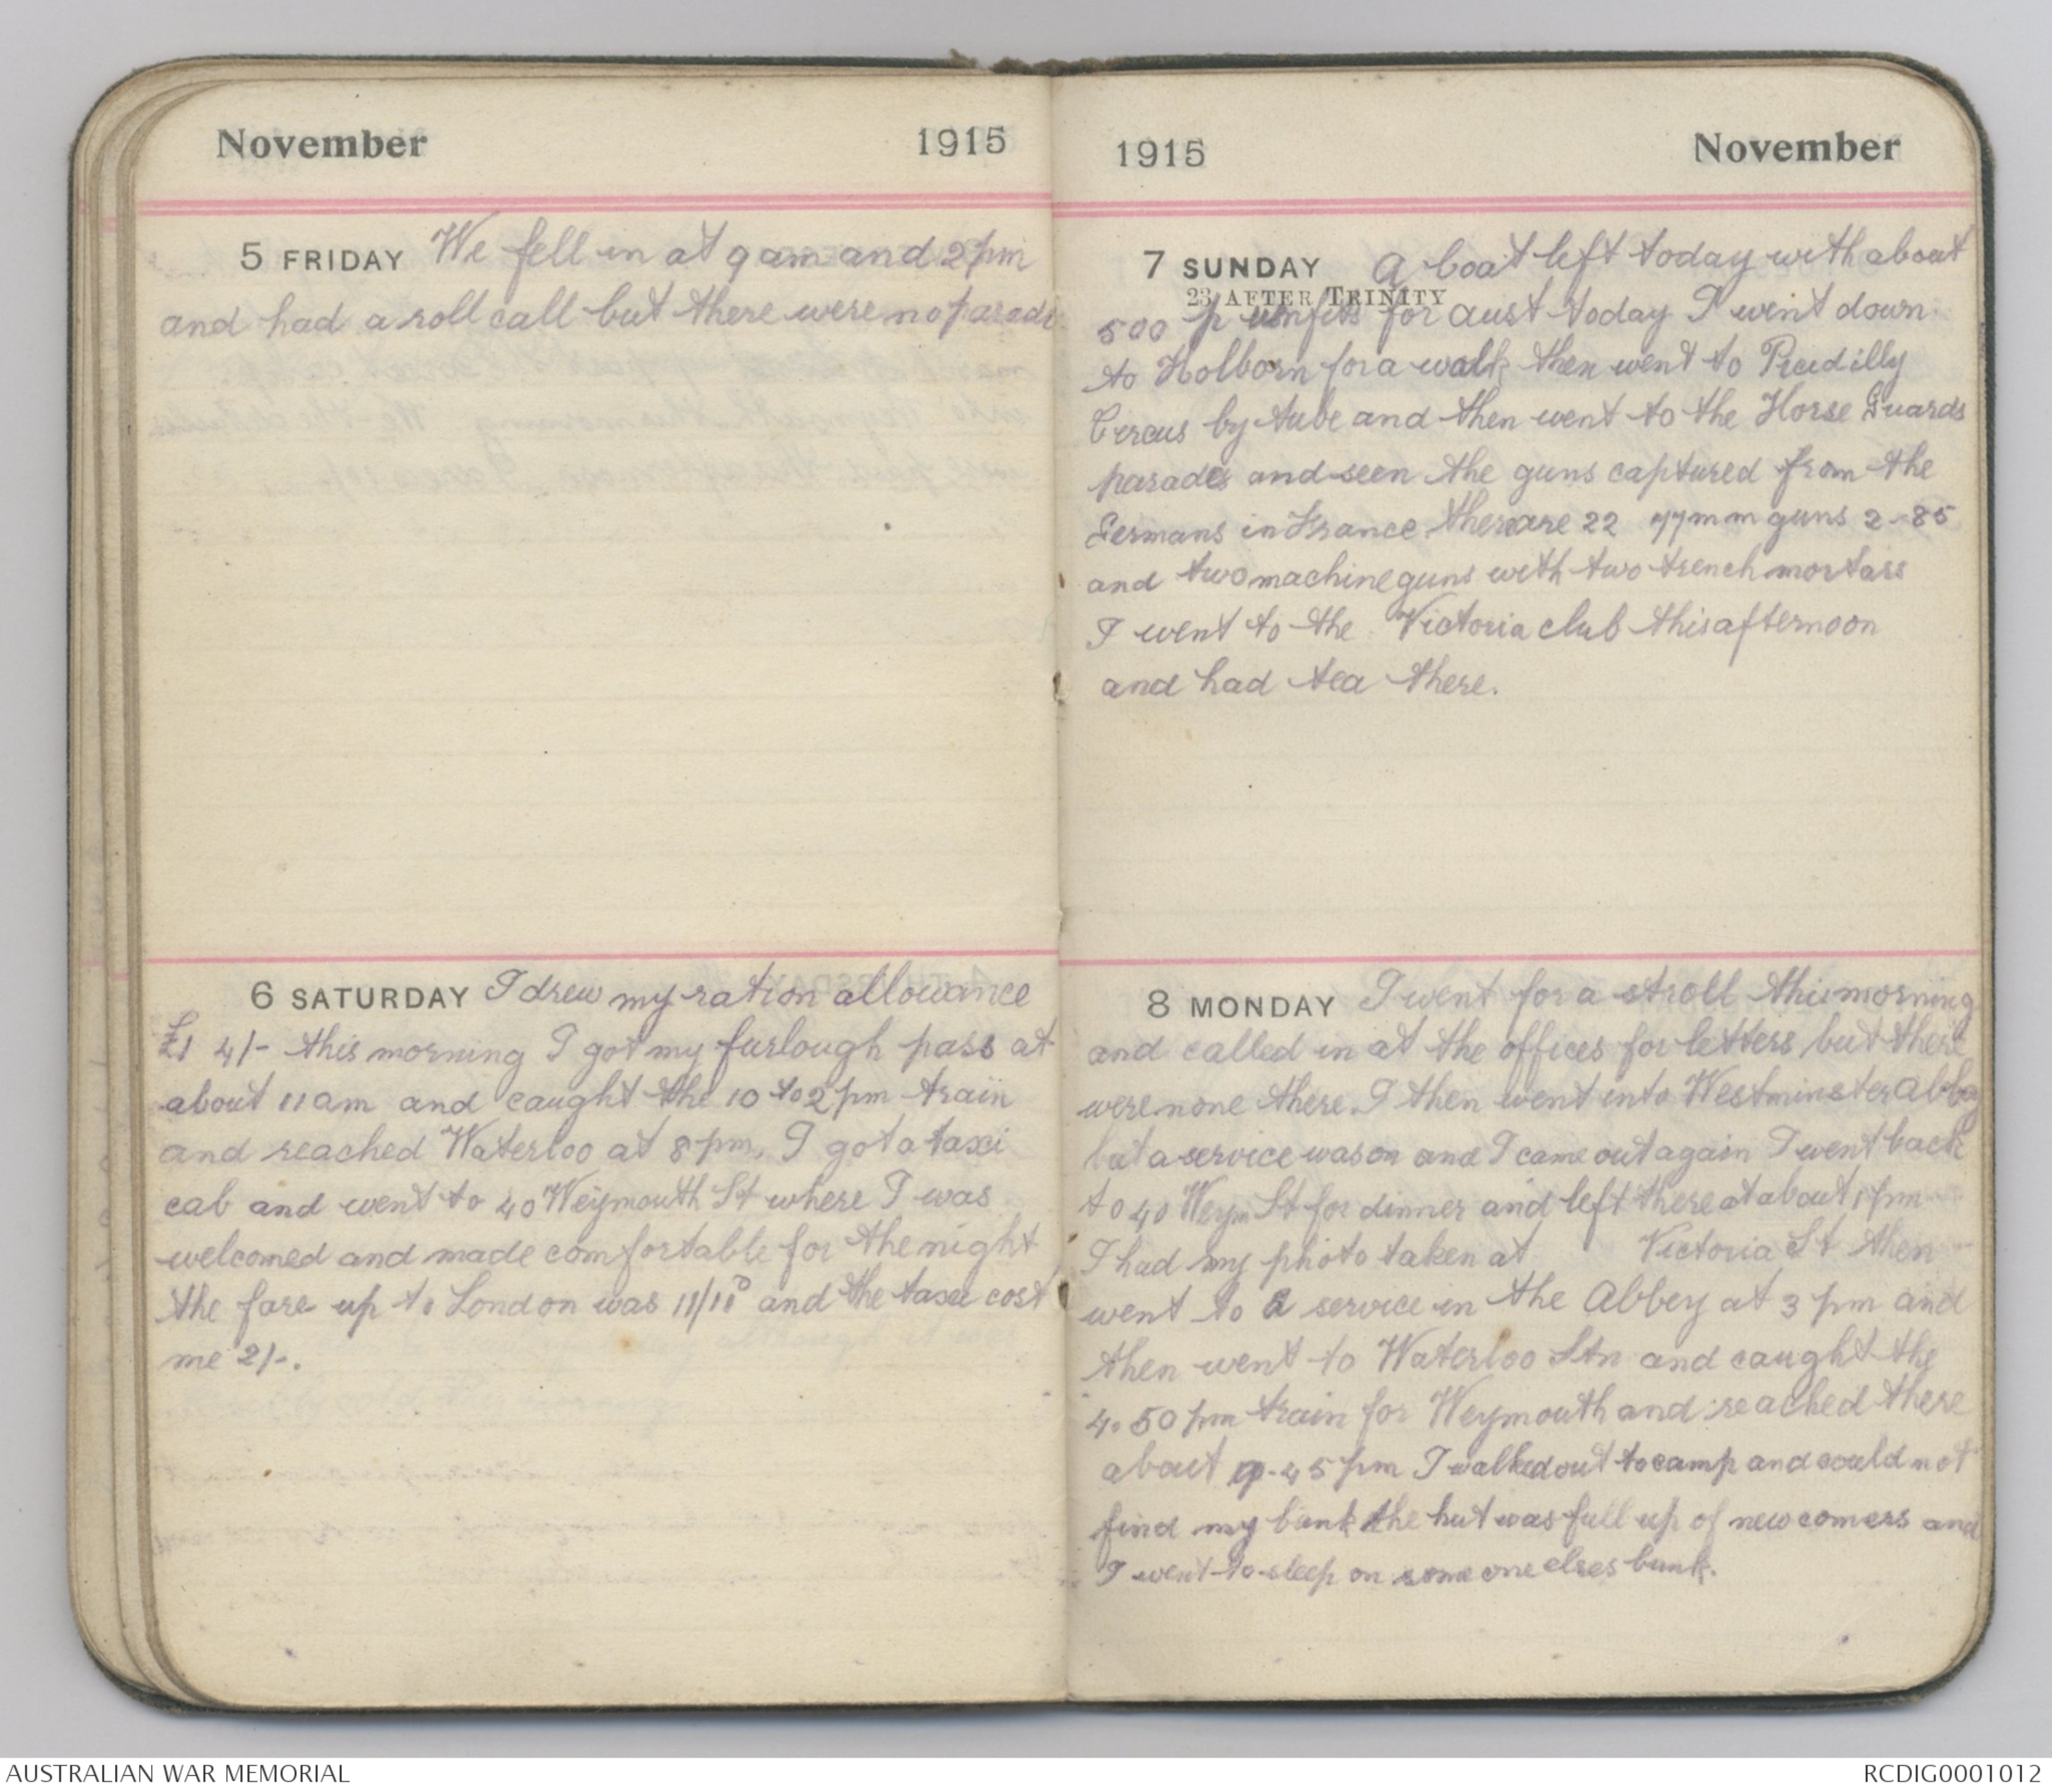 November 1915
5 FRIDAY We fell in at 9 am and 2 pm
and had a roll call but there were no parade
6 SATURDAY I drew my ration allowance
£1 4/- this morning I got my furlough pass at
about 11 am and caught the 10 to 2 pm train
and reached Waterloo at 8 pm. I got a taxi
cab and went to 40 Weymouth St where I was
welcomed and made comfortable for the night
the fare up to London was 11/10 and the taxi cost
me 2/-.
1915 November
7 SUNDAY A boat left today with about
23 AFTER TRINITY
500 unfits for aust today I went down
to Holborn for a walk then went to Picadilly
Circus by tube and then went to the Horse Guards
parades and seen the guns captured from the
Germans in France there are 22 77mm guns 2-85
and two machine guns with two trench mortars
I went to the Victoria club this afternoon
and had tea there.
8 MONDAY I went for a stroll this morning
and called in at the offices for letters but there
were none there. I then went into Westminster Abbey
but a service was on and I came out again I went back
to 40 Weym St for dinner and left there at about 1 pm
I had my photo taken at Victoria St then
went to a service in the Abbey at 3 pm and
then went to Waterloo Stn and caught the
4.50 pm train for Weymouth and reached there
about 9-45 pm I walked out to camp and could not
find my bunk the hut was full up of new comers and
I went to sleep on some one elses bunk.
AUSTRALIAN WAR MEMORIAL RCDIG0001012